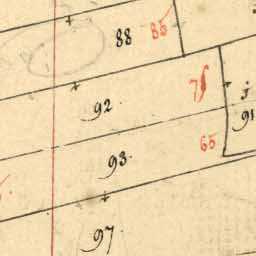 88 85
92
91
93 65
97